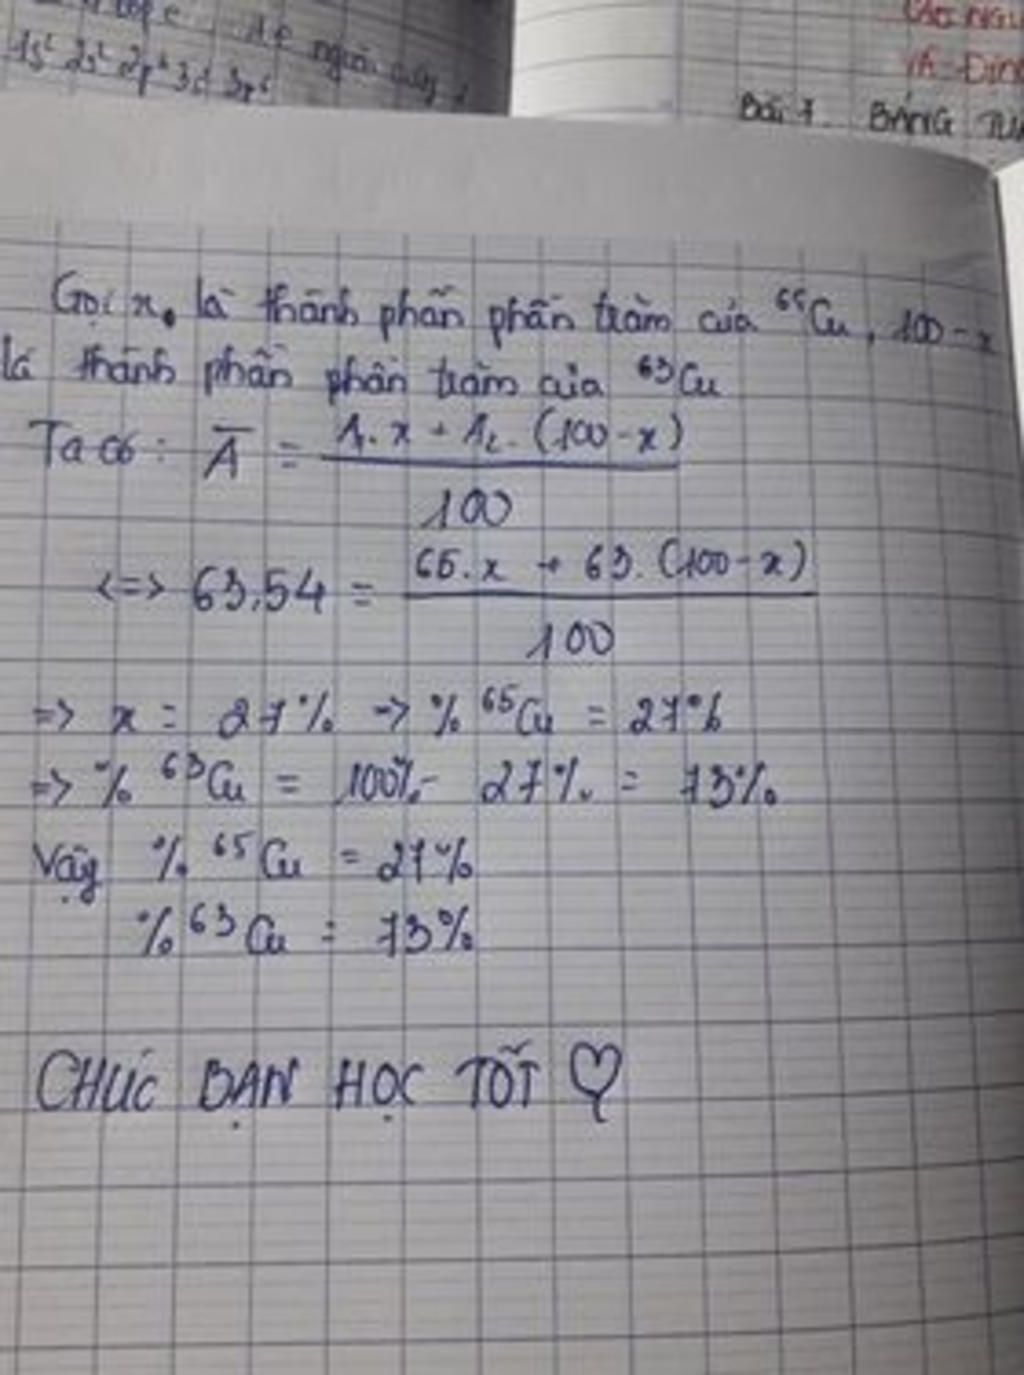 1s² 2s² 2p⁶ 3s² 3p⁶
Bài 7 BẢNG
Gọi x là thành phần phần trăm của ⁶⁵Cu, 100-x
là thành phần phần trăm của ⁶³Cu
Ta có: A̅ = A₁.x + A₂.(100-x)
100
<=> 63,54 = 65.x + 63.(100-x)
100
=> x = 27% -> % ⁶⁵Cu = 27%
=> % ⁶³Cu = 100% - 27% = 73%
Vậy % ⁶⁵Cu = 27%
% ⁶³Cu = 73%
CHÚC BẠN HỌC TỐT ♡